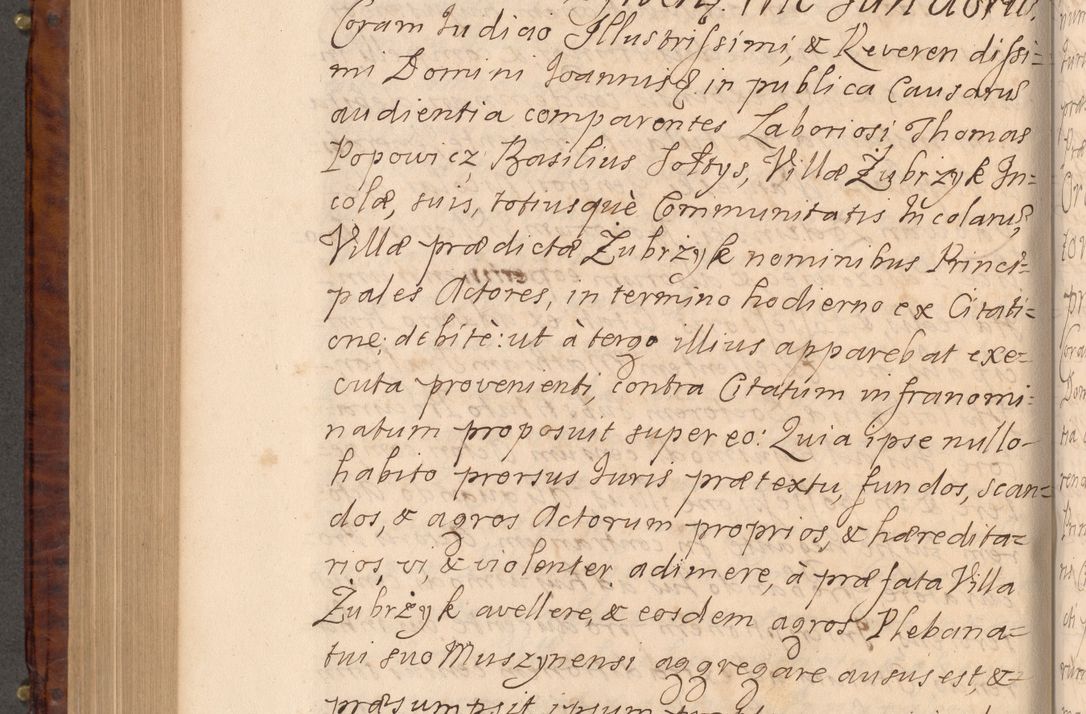 Coram Judicio Illustrissimi, & Reverendissi=
mi Domini Joannis &. in publica Causarũ
audientia comparentes Laboriosi Thomas
Popowicz, Basilius Sołtys, Villæ Żubrzyk In=
colæ, suis, totiusquè Communitatis Incolarũ
Villæ prædictæ Żubrżyk nominibus Princi=
pales Actores, in termino hodierno ex Citati=
one, debitè: ut à tergo illius apparebat exe=
cuta provenienti, contra Citatum infranomi=
natum proposuit super eo: Quia ipse nullo
habito prorsus Juris prætextu, fundos, scan=
dos, & agros Actorum proprios, & hæredita=
rios, vi, & violenter adimere, à præfata Villa
Żubrżyk avellere, & eosdem agros Plebana=
tui suo Muszynensi aggregare ausus est, &
præsumpsit ipsum